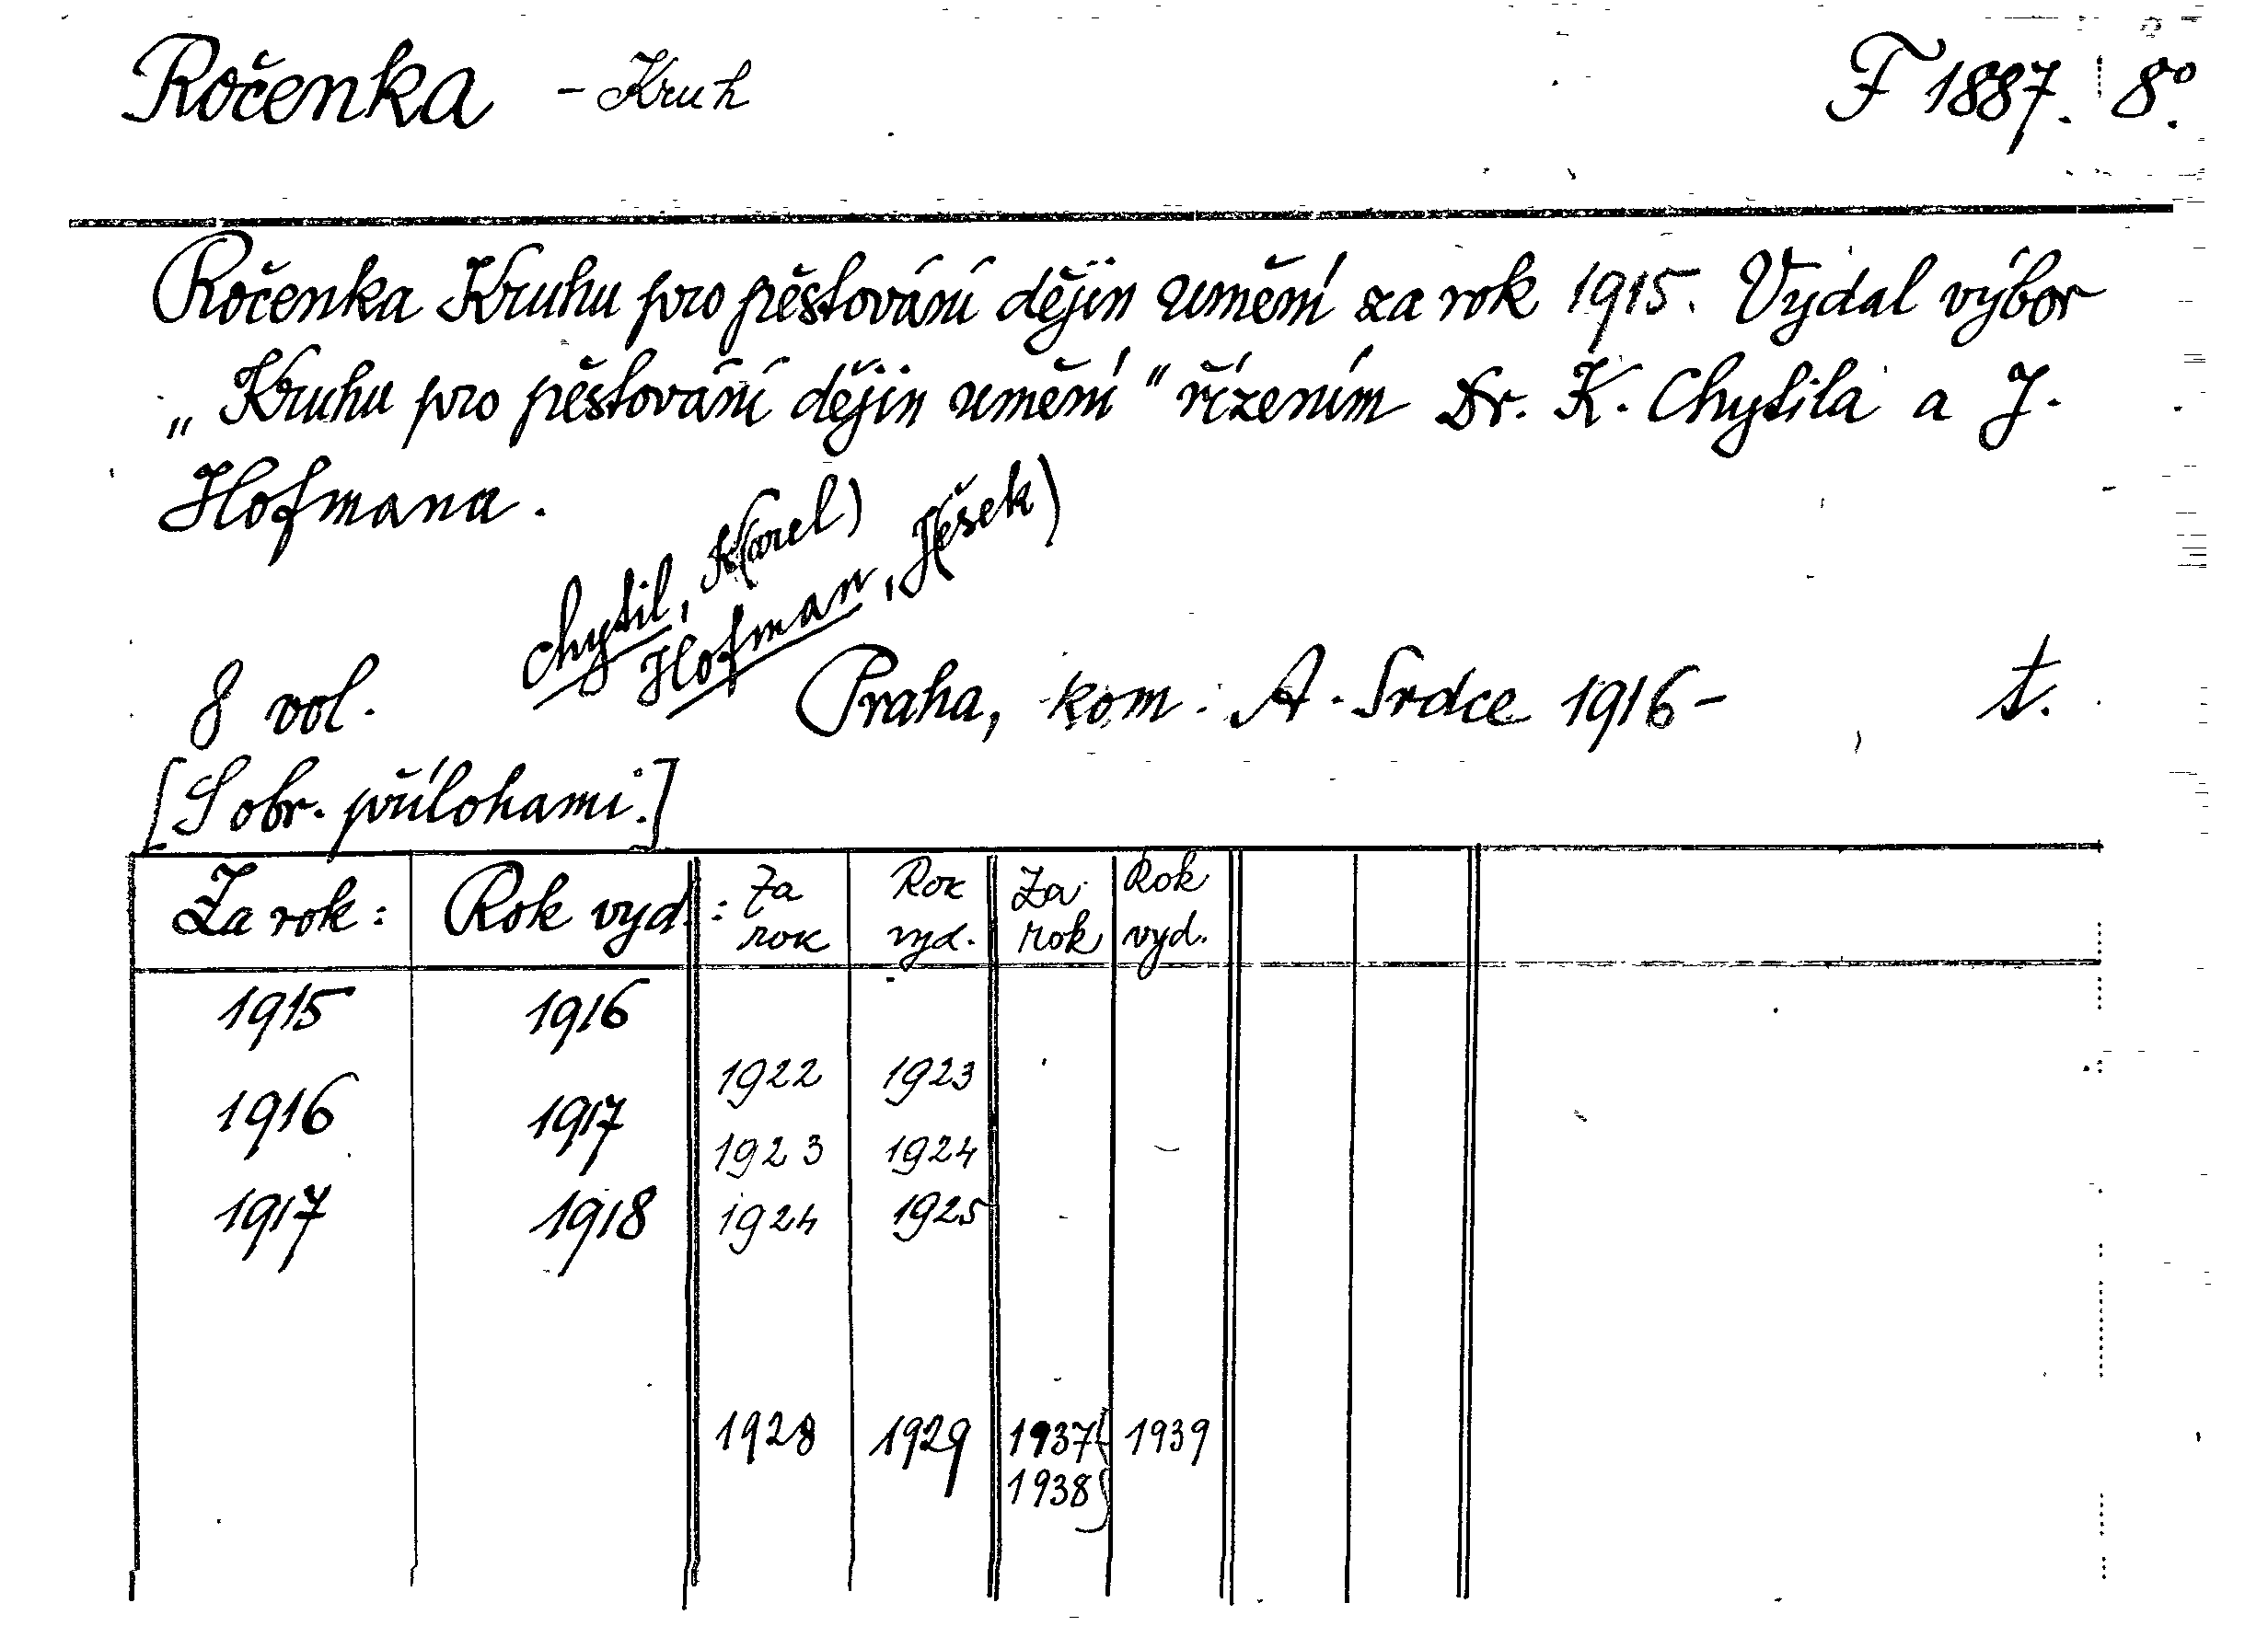 Ročenka - Kruh F 1887. 8°.
Ročenka Kruhu pro pěstování dějin umění za rok 1915. Vydal výbor
„Kruhu pro pěstování dějin umění" řízením Dr. K. Chytila a J.
Hofmana.
Chytil, K(arel)
Hofman, J(ešek)
8 vol. Praha, kom. A. Srdce 1916- t.
[S obr. přílohami.]
Za rok: Rok vyd.: Za rok Rok vyd. Za rok Rok vyd.
1915 1916
1922 1923
1916 1917
1923 1924
1917 1918 1924 1925
1928 1929 1937 1939
1938